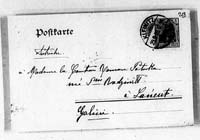 Postkarte
Autriche
à Madame la Comtesse Roman Potocka
née Psse Radziwill
à Lancut
Galicie